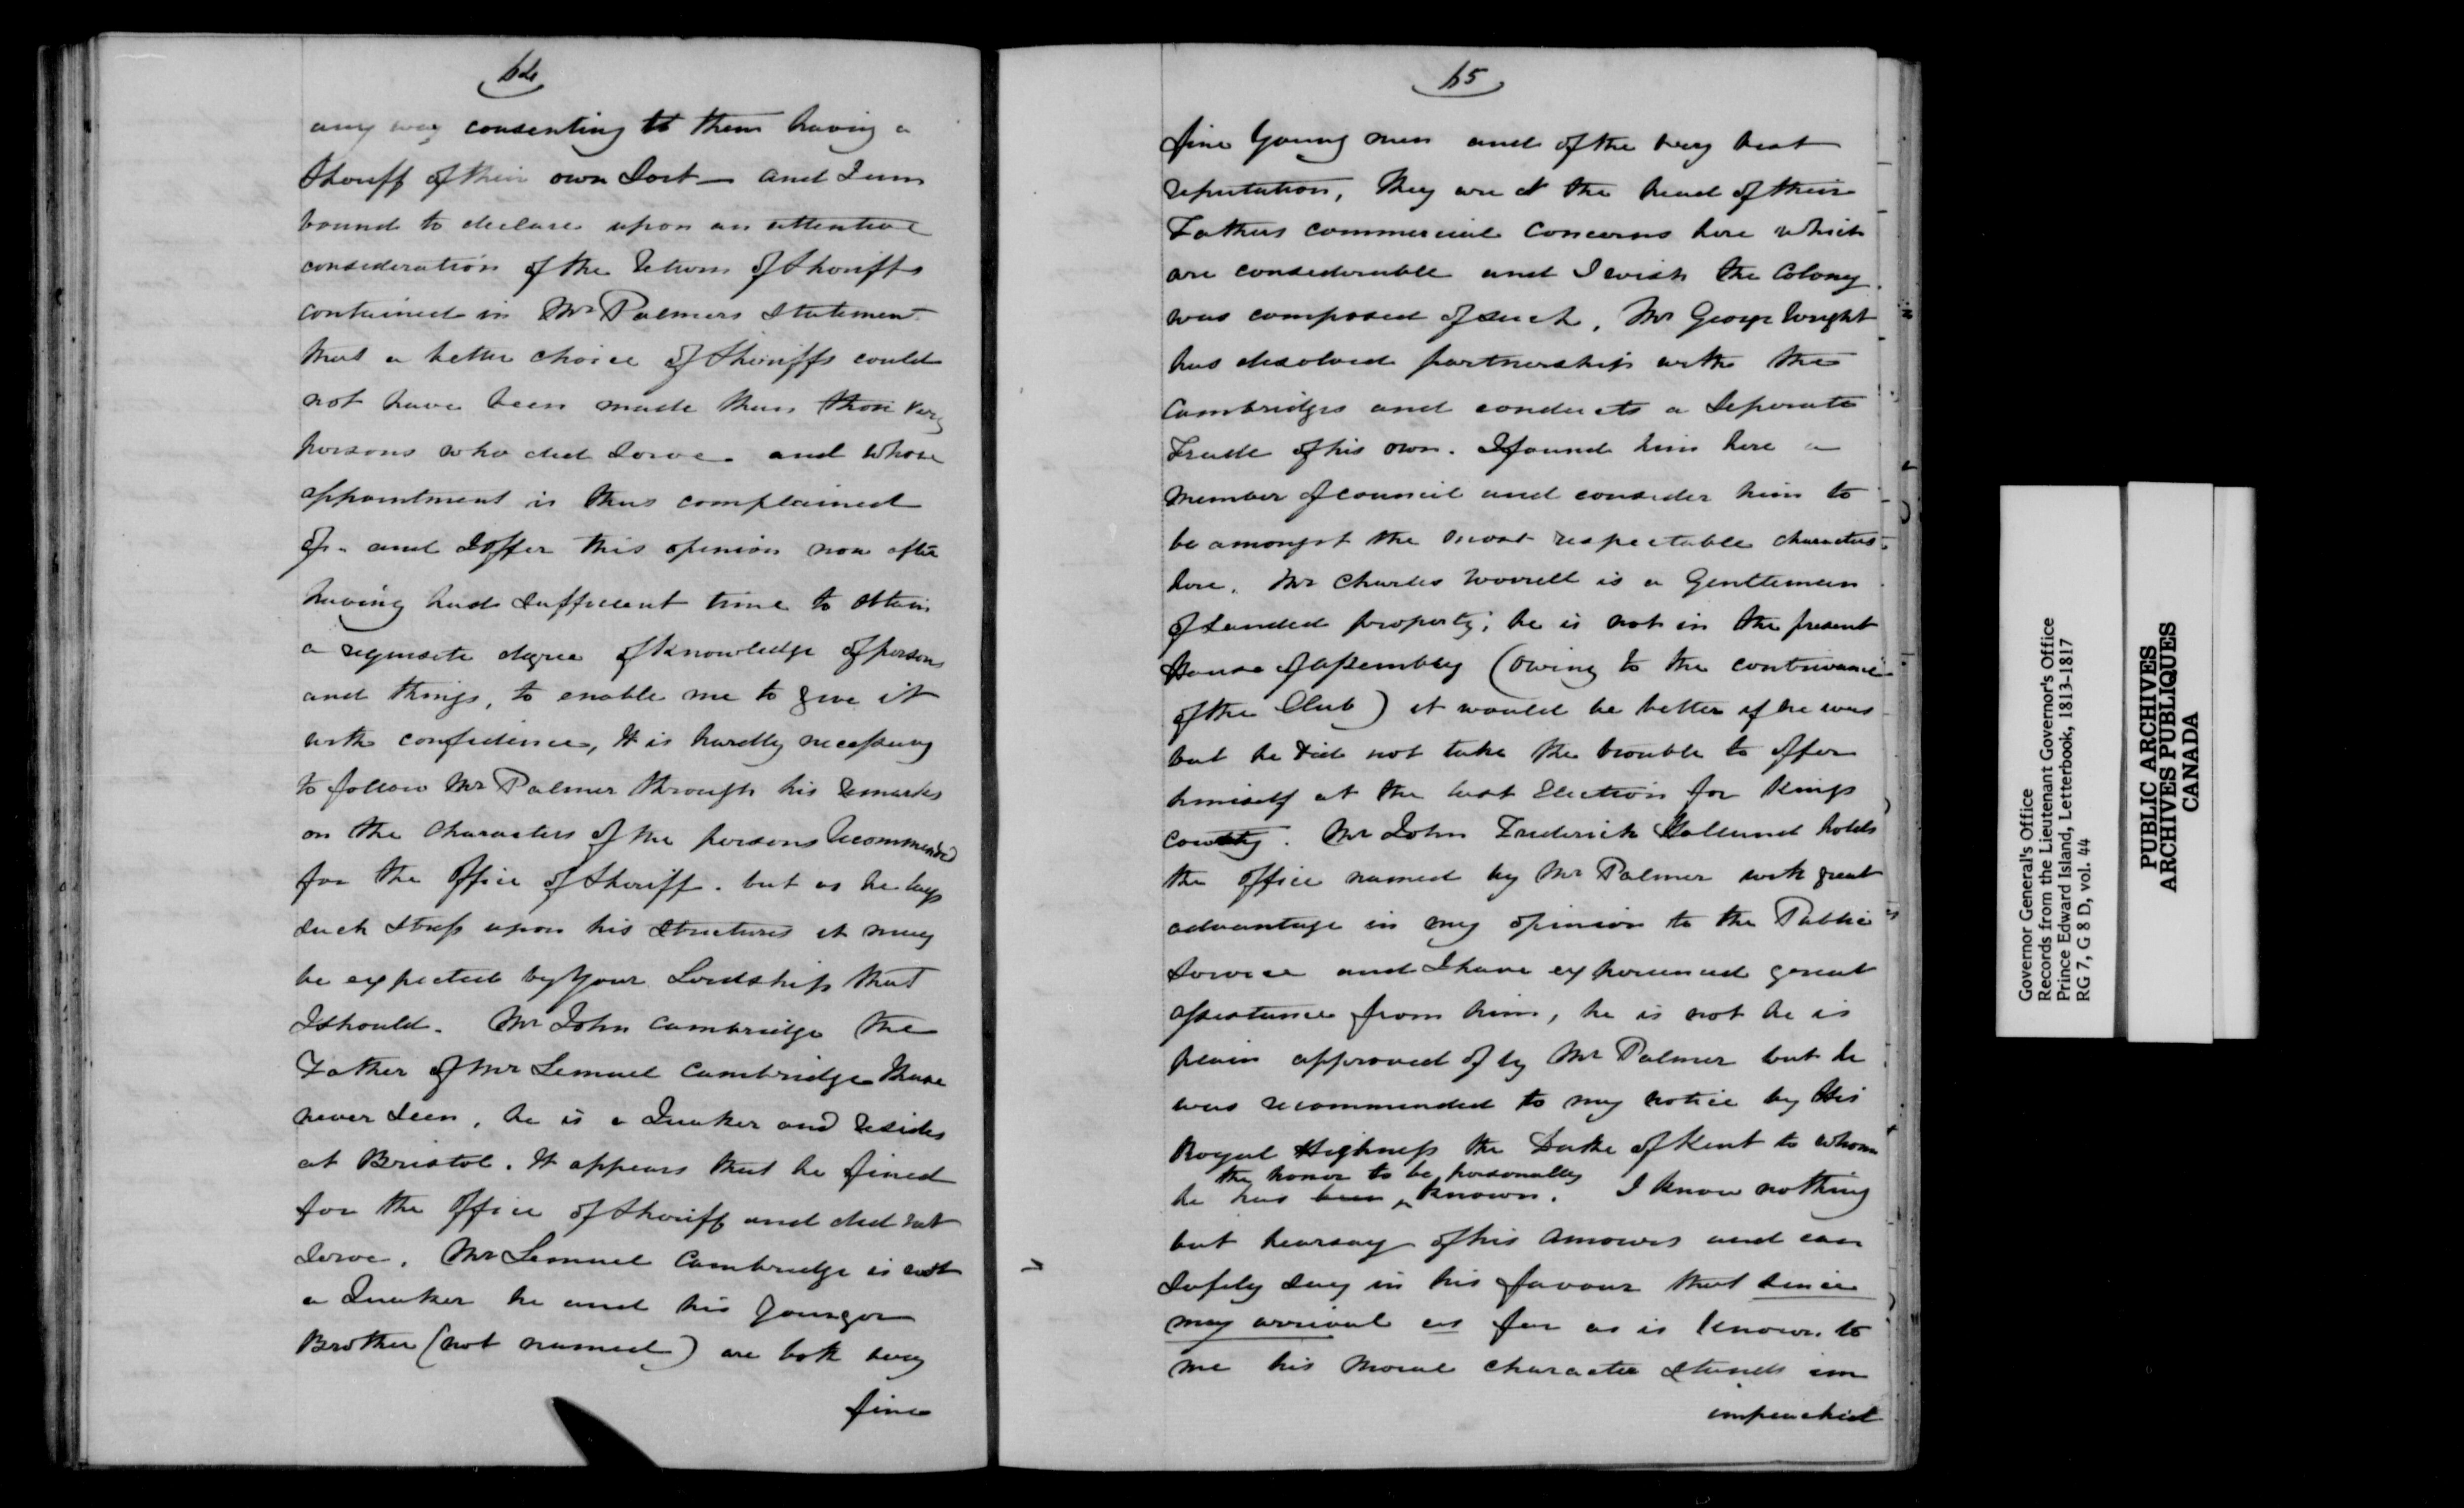 64
any way consenting to them having a
Sheriff of their own Sort — and I am
bound to declare upon an attentive
consideration of the Return of Sheriffs
contained in Mr Palmers Statement
that a better choice of Sheriffs could
not have been made than those very
persons who did serve and whose
appointment is thus complained
of. and I offer this opinion now after
having had sufficient time to attain
a requisite degree of knowledge of persons
and things, to enable me to give it
with confidence, It is hardly necessary
to follow Mr Palmer through his remarks
on the Characters of the persons recommended
for the Office of Sheriff. but as he lays
such stress upon his strictures it may
be expected by Your Lordship that
I should. Mr John Cambridge the
Father of Mr Lemuel Cambridge I have
never seen, he is a Quaker and resides
at Bristol. It appears that he fined
for the Office of Sheriff and did not
serve. Mr Lemuel Cambridge is not
a Quaker he and his Younger
Brother (not named) are both very
fine
65
fine Young men and of the very best
reputation, They are at the head of their
Fathers commercial Concerns here which
are considerable and I wish the Colony
was composed of such, Mr George Wright
has desolved partnership with the
Cambridges and conducts a Seperate
Trade of his own. I found him here a
Member of council and consider him to
be amongst the most respectable characters
here. Mr Charles Worrell is a Gentleman
of Landed property; he is not in the present
House of Assembly (owing to the contrivance
of the Club) it would be better if he was
but he did not take the trouble to offer
himself at the last Election for Kings
county. Mr John Frederick Holland holds
the office named by Mr Palmer with great
advantage in my opinion to the Public
Service and I have experienced great
assistance from him, he is not he is
plain approved of by Mr Palmer but he
was recommended to my notice by His
Royal Highness the Duke of Kent to whom
the honor to be personally
he has been known. I know nothing
but hearsay of his Amours and can
safely say in his favour that since
my arrival as far as is known to
me his Moral Character stands im
impeached
Governor General's Office
Records from the Lieutenant Governor's Office
Prince Edward Island, Letterbook, 1813-1817
RG 7, G 8 D, vol. 44
PUBLIC ARCHIVES
ARCHIVES PUBLIQUES
CANADA